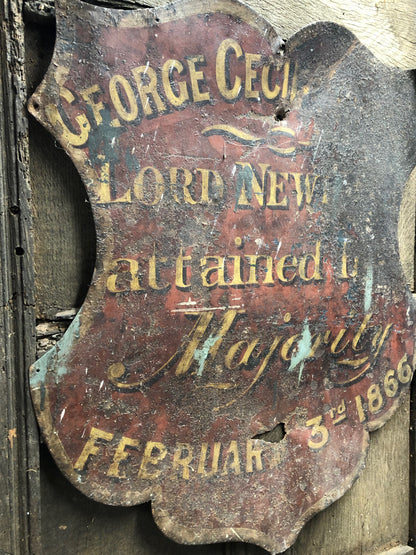 GEORGE CECIL
LORD NEW
attained
Majority
FEBRUARY 3rd 1866